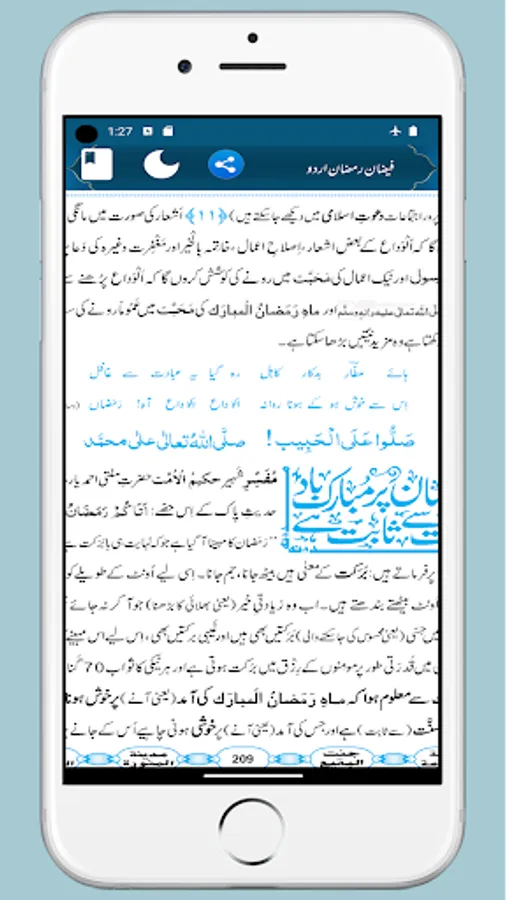 1:27
فیضان رمضان اردو
اجتماعات دعوتِ اسلامی میں دیکھے جاسکتے ہیں) ﴿۱۱﴾ اَشعار کی صورت میں مانگی
گا کہ اَلْوَداع کے بعض اشعار، اِصلاحِ اعمال، خاتمہ بِالْخَیْر اور مَغْفِرت وغیرہ کی دُعا پر
رسول اور نیک اعمال کی مَحَبَّت میں رونے کی کوشش کروں گا کہ اَلْوَداع پڑھنے سے
اور ماہِ رَمَضانُ الْمبارَك کی مَحَبَّت میں عُمُوماً رونے کی
رکھتا ہے وہ مزید نیّتیں بڑھا سکتا ہے۔
ہائے عطّارِ بدکار کاہِل رہ گیا یہ عبادت سے غافل
اِس سے خوش ہو کے ہونا روانہ اَلْوَداع اَلْوَداع آہ! رَمَضاں
صَلُّوا عَلَی الْحَبِیب! صلَّی اللهُ تعالٰی علٰی محمَّد
مُفَسِّرِ شَہیر حکیمُ الْاُمَّت حضرتِ مفتی احمد یار
رمضان پر مبارک باد
سے ثابت ہے
حدیثِ پاک کے اِس حصّے: اَتَاکُمْ رَمَضَانُ
”رَمَضان کا مہینا آ گیا ہے جو کہ نہایت ہی بابَرَکت ہے
پر فرماتے ہیں: بَرَکت کے معنٰی ہیں بیٹھ جانا، جم جانا۔ اِسی لیے اُونٹ کے طویلے کو
اُونٹ بیٹھتے بندھتے ہیں۔ اب وہ زیادتیٔ خیر (یعنی بھلائی کا بڑھنا) جو آ کر نہ جائے
میں حِسّی (یعنی محسوس کی جاسکنے والی) بَرَکتیں بھی ہیں اور غیبی بَرَکتیں بھی، اس لیے اس مہینے
میں قُدرَتی طور پر مومنوں کے رِزْق میں بَرَکت ہوتی ہے اور ہر نیکی کا ثواب 70 گُنا
سے معلوم ہوا کہ ماہِ رَمَضانُ الْمبارَك کی آمد (یعنی آنے) پر خوش ہونا
سُنّت (سے ثابت) ہے اور جس کی آمد (یعنی آنے) پر خوشی ہونی چاہیے اُس کے جانے
مدینة المنورة 209 جنت البقیع